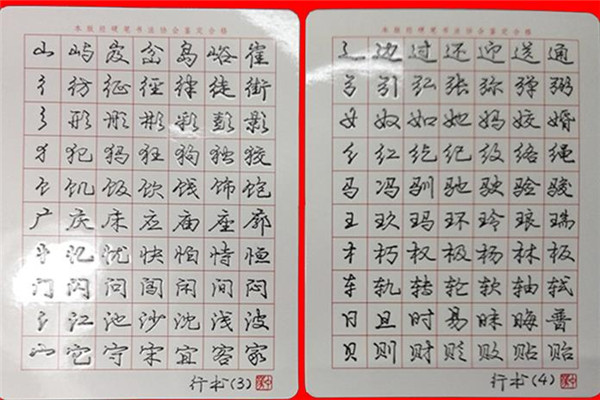 本版经硬笔书法协会鉴定合格
山 屿 岌 岔 岛 峪 崔
彳 彷 征 径 律 徒 街
彡 形 彤 彬 彩 彭 影
犭 犯 犸 狂 狗 独 狡
饣 饥 饭 饮 饯 饰 饱
广 庆 床 应 庙 座 廓
忄 忆 忧 快 怕 恃 恒
门 闪 问 闯 闲 间 闷
氵 江 池 沙 沈 浅 波
宀 它 宁 宋 宜 客 家
行书(3)
本版经硬笔书法协会鉴定合格
辶 边 过 还 迎 送 通
弓 引 弘 张 弥 弹 粥
女 奴 如 她 妈 姣 婚
纟 红 纪 级 络 绳
马 冯 驯 驰 驶 验 骏
王 玖 玛 环 玲 琅 瑞
木 朽 权 极 杨 林 板
车 轨 转 轮 软 轴 轼
日 旦 时 易 昧 晦 普
贝 则 财 贬 败 贴 贻
行书(4)